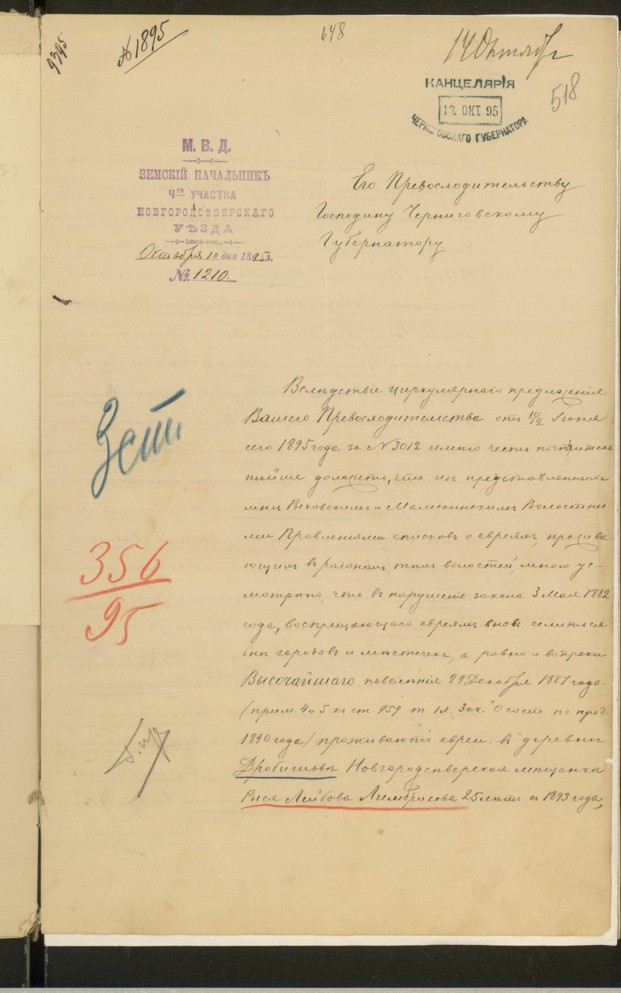 9395
№ 1895
648
14 Октябр
518
КАНЦЕЛЯРІЯ
13. ОКТ. 95
ЧЕРНИГОВСКАГО ГУБЕРНАТОРА
М. В. Д.
ЗЕМСКІЙ НАЧАЛЬНИКЪ
4го УЧАСТКА
НОВГОРОДСѢВЕРСКАГО
УѢЗДА
Октября 10 дня 1895 г.
№ 1210.
Его Превосходительству
Господину Черниговскому
Губернатору
Вслѣдствіе циркулярнаго предложенія
Вашего Превосходительства отъ 10/12 Іюня
сего 1895 года за №3012 имѣю честь почтитель
нѣйше доложить, что изъ представленныхъ
мнѣ и Волостны
ми Правленіями списковъ о евреяхъ, прожива
ющихъ въ районахъ тѣхъ волостей, мною ус-
мотрѣно, что въ нарушеніе закона 3 Мая 1882
года, воспрещающаго евреямъ вновь селиться
внѣ городовъ и мѣстечекъ, а равно и вопреки
ВЫСОЧАЙШАГО повелѣнія 29 Декабря 1887 года
(прим. 4 и 5 къ ст. 959 т. IX Зак. О сост. по прод.
1890 года) проживаютъ евреи: въ деревнѣ
Дробишевѣ Новгородсѣверская мѣщанка
Рися Лейбова 25 лѣтъ съ 1893 года,
356
95